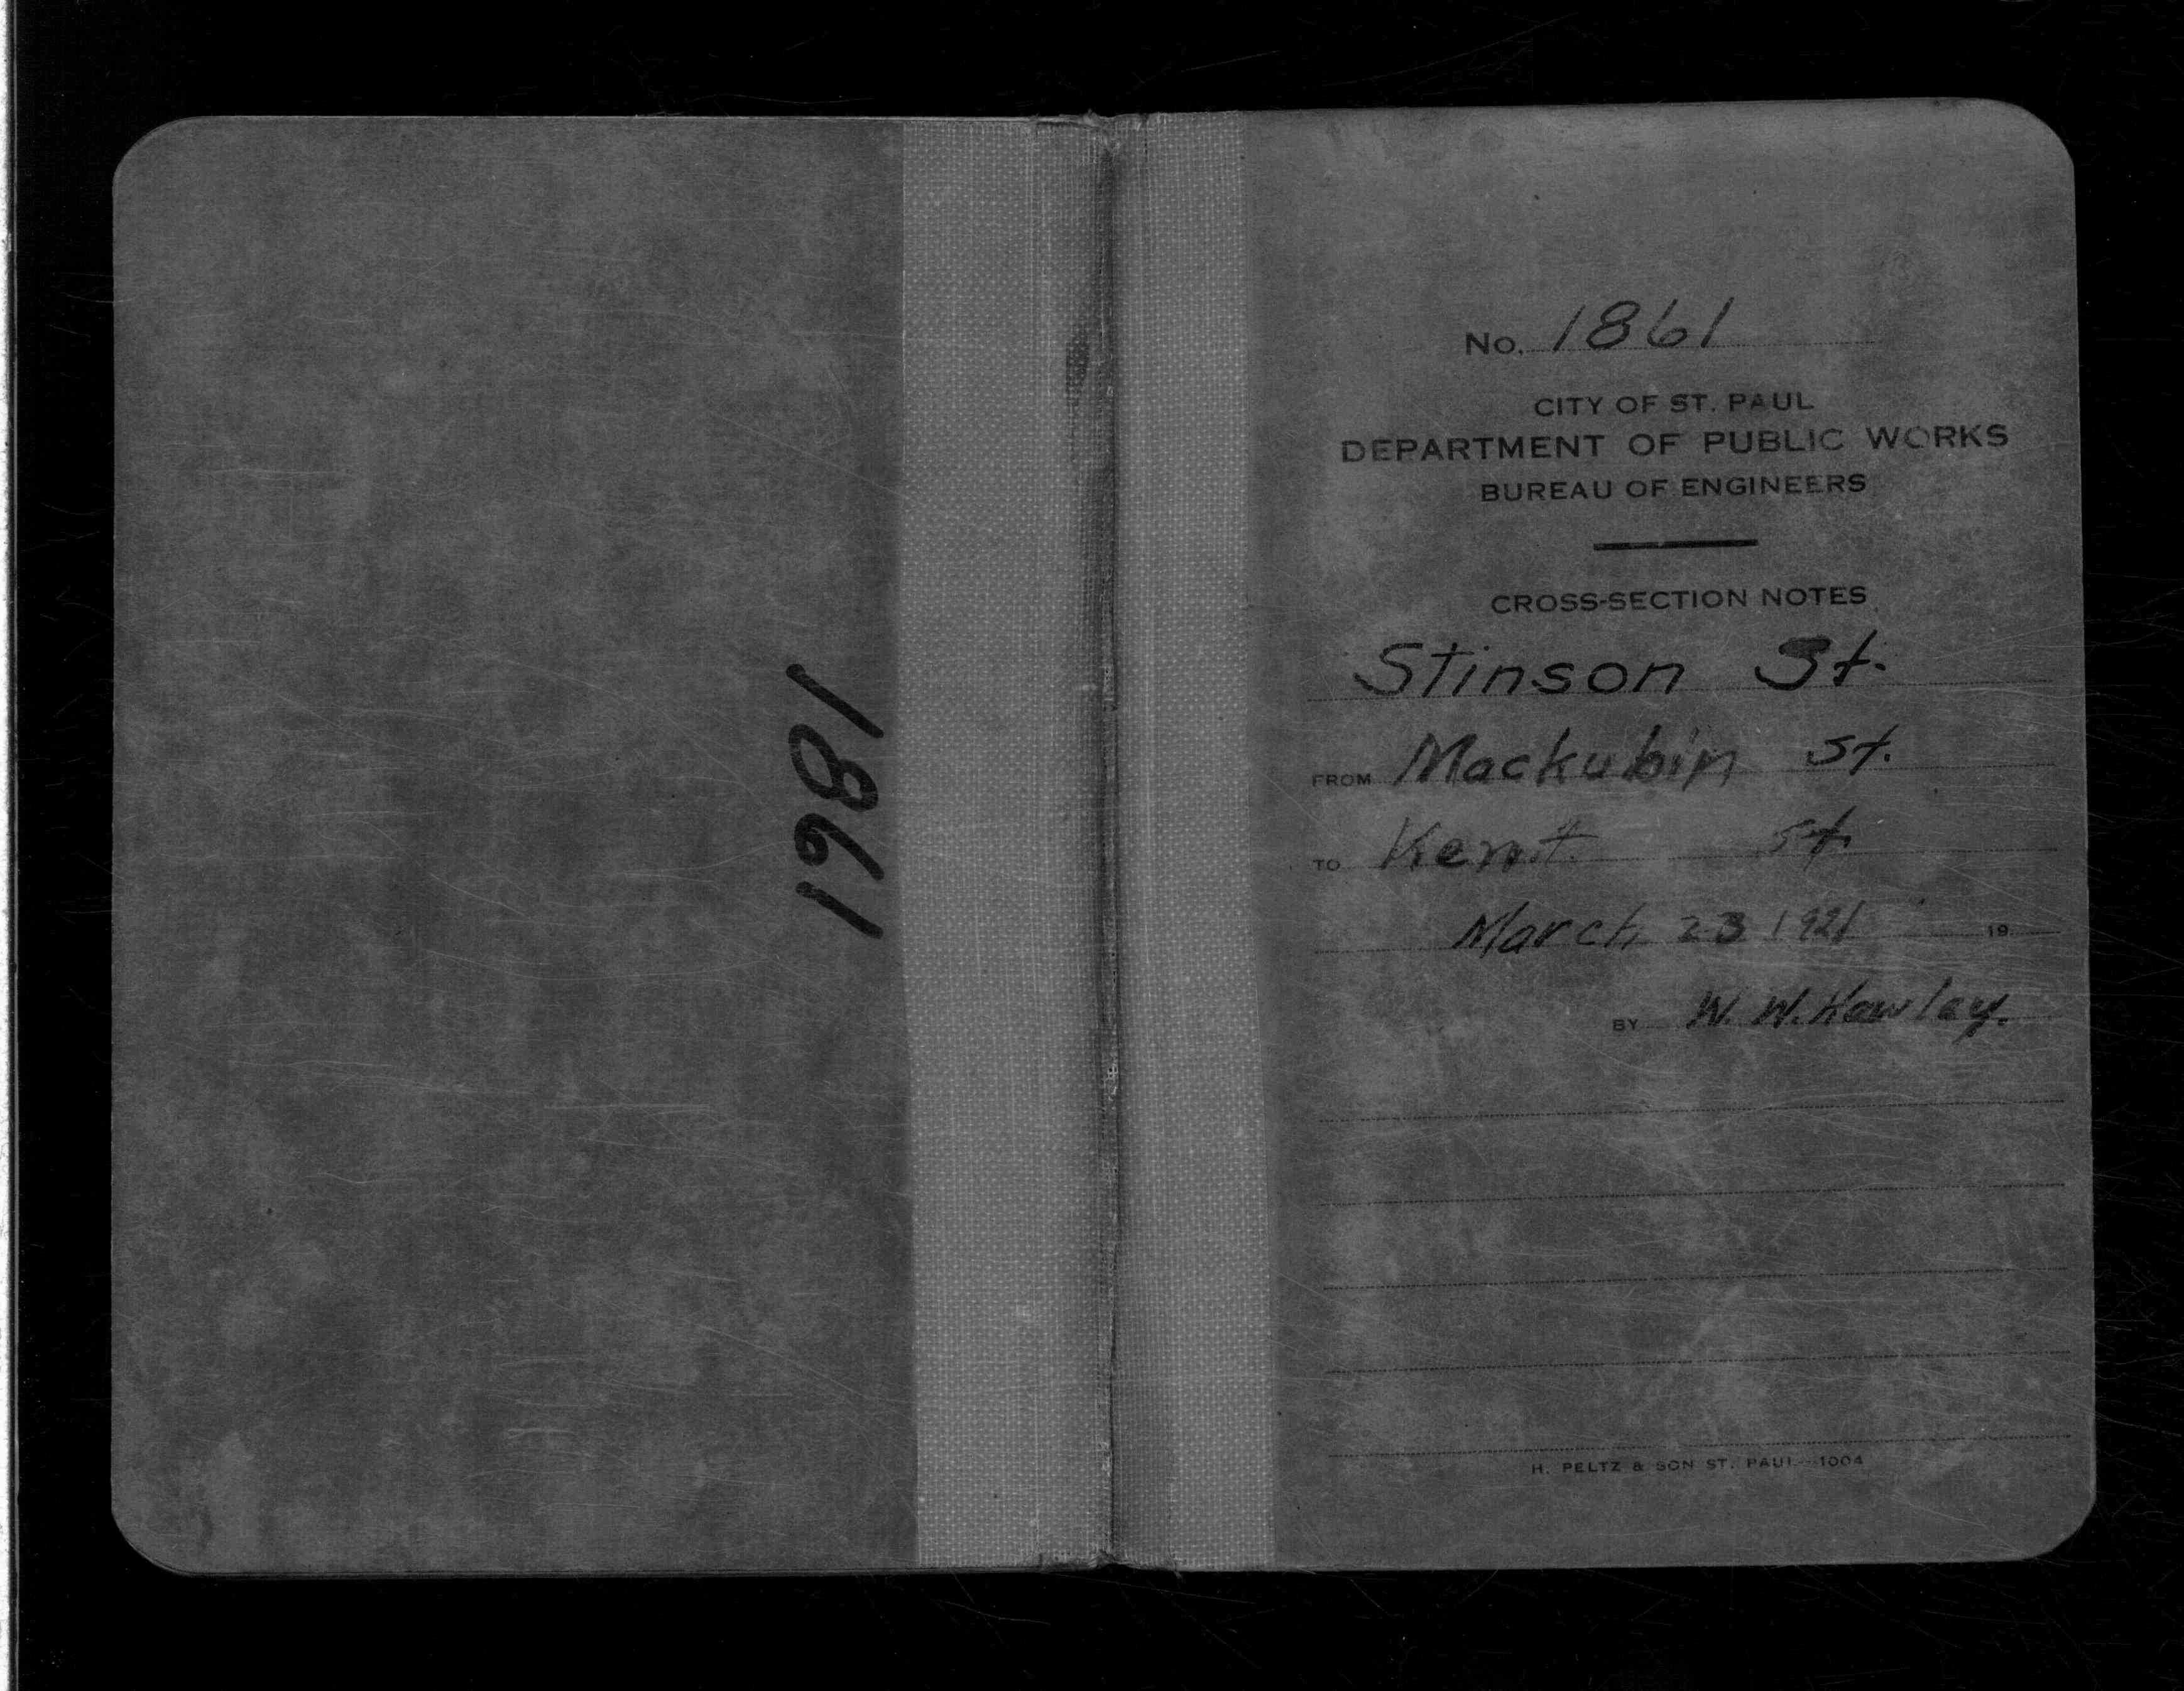 1861
No. 1861
CITY OF ST. PAUL
DEPARTMENT OF PUBLIC WORKS
BUREAU OF ENGINEERS
CROSS-SECTION NOTES
Stinson St.
FROM Mackubin St.
TO Kent St.
March 23 1921 19
BY W. W. Hawley.
H. PELTZ & SON ST. PAUL—1004